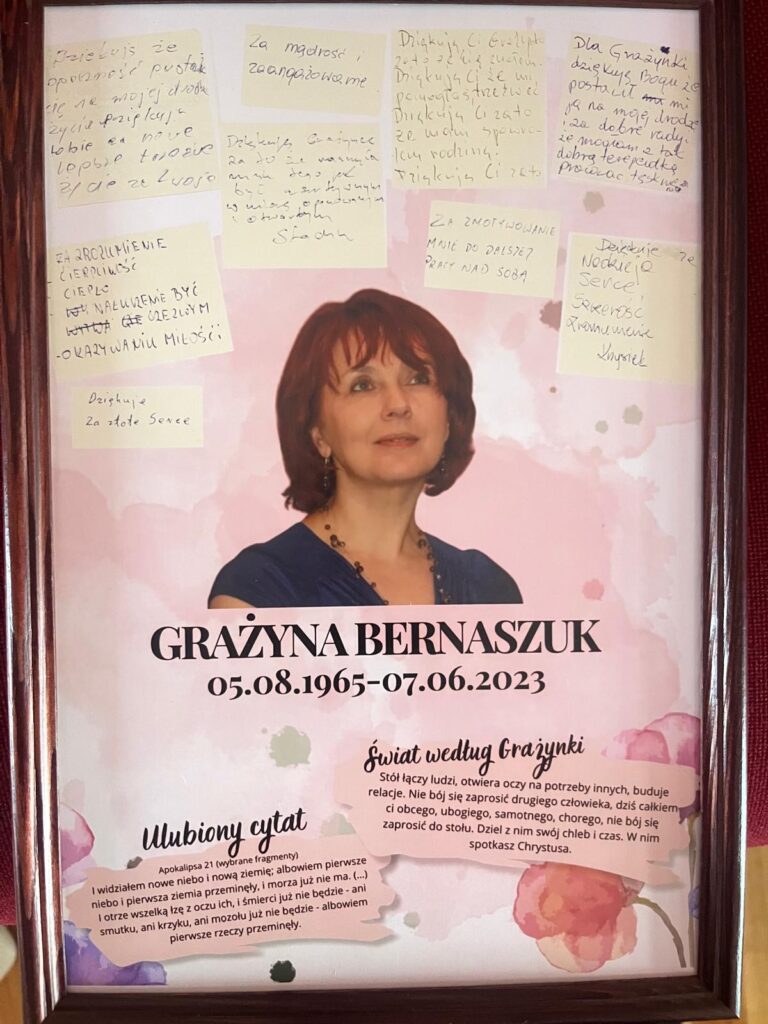 Dziękuję że
życie dziękuję
Za mądrość i
zaangażowanie
Dziękuję Ci Grażynko
Dziękuję Ci że mi
pomogłaś trzeźwieć
Dziękuję Ci za to
że mam
rodzinę.
Dziękuję Ci za to
Dla Grażynki
dziękuję Bogu że
postawił mi
ją na mojej drodze
i za dobre rady.
że mogłam z tak
dobrą terapeutką
Dziękuję Grażynce
za to że
być
i otwartym
ZA ZROZUMIENIE
- CIERPLIWOŚĆ
CIEPŁO
NAUCZENIE BYĆ
-OKAZYWANIU MIŁOŚCI
ZA ZMOTYWOWANIE
MNIE DO DALSZEJ
PRACY NAD SOBĄ
Dziękuję za
Nadzieję
Serce
Szczerość
Zrozumienie
Dziękuję
Za złote Serce
GRAŻYNA BERNASZUK
05.08.1965-07.06.2023
Świat według Grażynki
Stół łączy ludzi, otwiera oczy na potrzeby innych, buduje
relacje. Nie bój się zaprosić drugiego człowieka, dziś całkiem
ci obcego, ubogiego, samotnego, chorego, nie bój się
zaprosić do stołu. Dziel z nim swój chleb i czas. W nim
spotkasz Chrystusa.
Ulubiony cytat
Apokalipsa 21 (wybrane fragmenty)
I widziałem nowe niebo i nową ziemię; albowiem pierwsze
niebo i pierwsza ziemia przeminęły, i morza już nie ma. (...)
I otrze wszelką łzę z oczu ich, i śmierci już nie będzie - ani
smutku, ani krzyku, ani mozołu już nie będzie - albowiem
pierwsze rzeczy przeminęły.